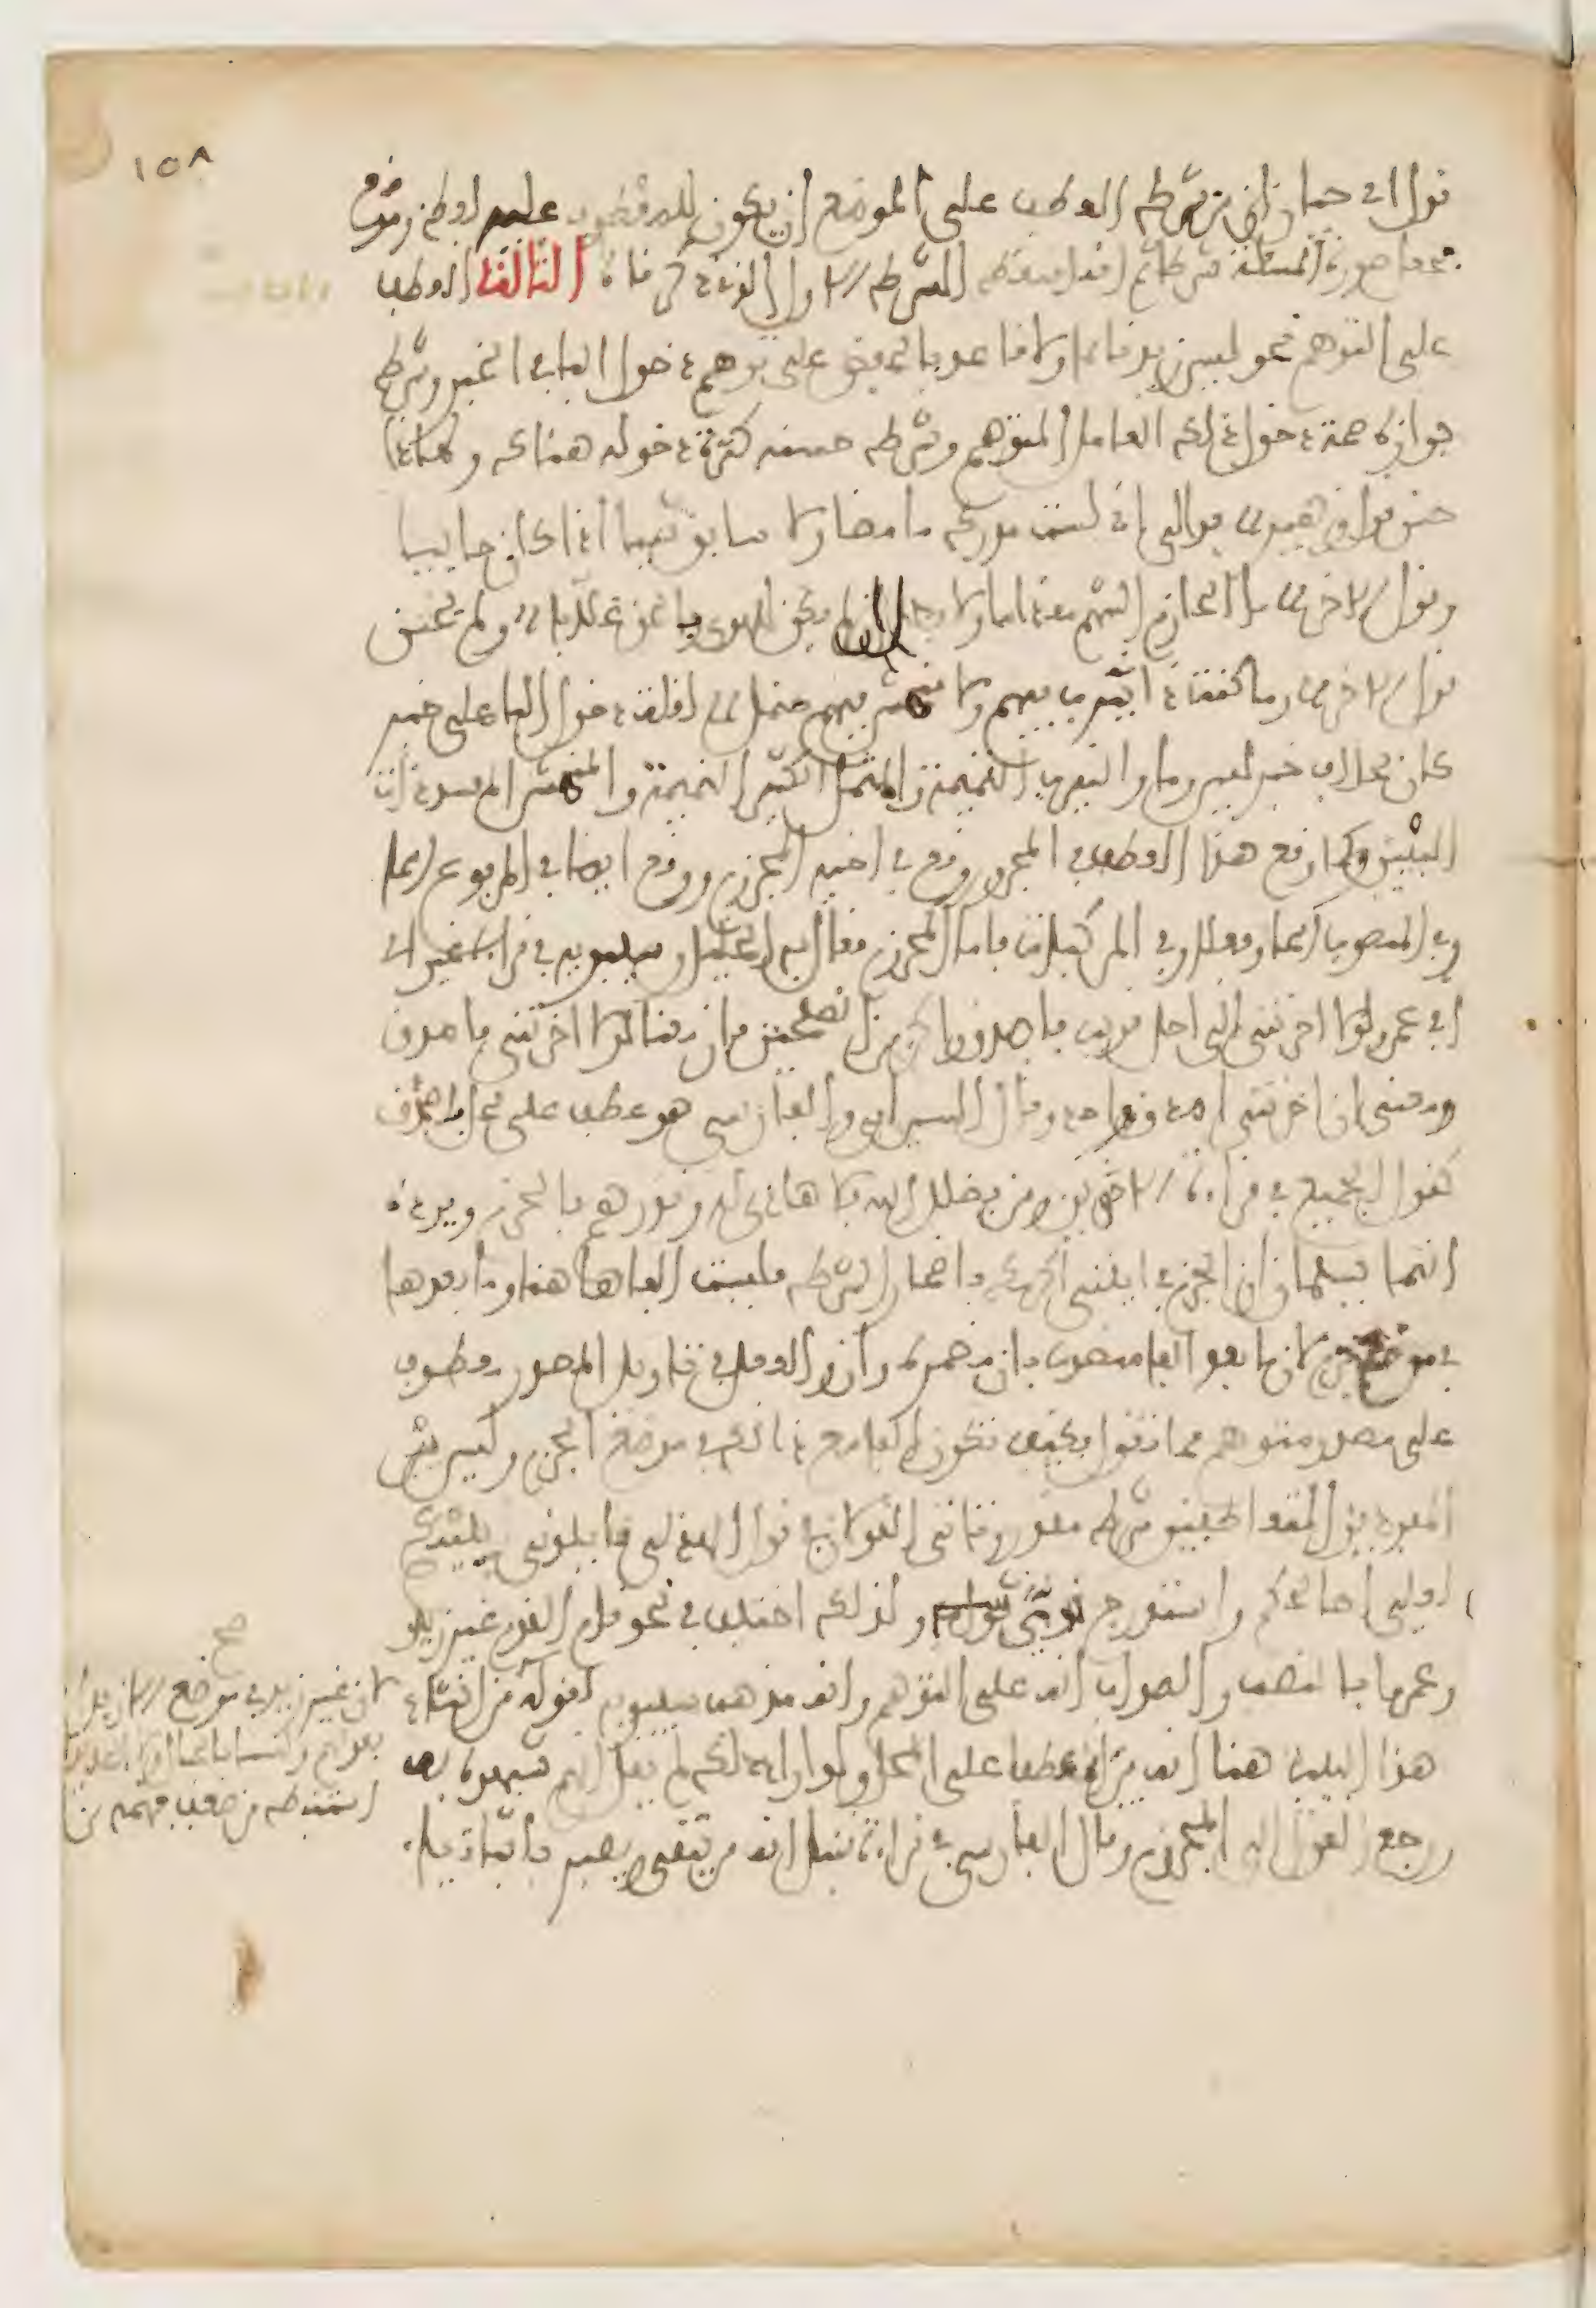 قول ابي حيان ان من شرط العطف على الموضع ان يكون للمعطوف عليه لفظ وموضع
فجعل صورة المسئلة شرطا لها ثم انه اسقط الشرط الاول الذي ذكرناه الثالث العطف
على التوهم نحو ليس زيد قائما ولا قاعد بالخفض على توهم دخول الباء في الخبر وشرط
جوازه صحة دخول ذلك العامل المتوهم وشرط حسنه كثرة دخوله هناك ولهذا
حسن قول زهير بدا لي اني لست مدرك ما مضى ولا سابق شيئا اذا كان جائيا
وقول الاخر ما الحازم الشهم مقداما ولا بطل ان لم يكن للهوى بالحق غلابا ولم يحسن
قول الاخر وما كنت ذا نيرب فيهم ولا منمش فيهم منمل لقلة دخول الباء على خبر
كان بخلاف خبر ليس وما والنيرب النميمة والمنمل الكثير النميمة والمنمش المفسد ذات
البين وكما وقع هذا العطف في المجرور وقع في اخيه المجزوم ووقع ايضا في المرفوع اسما
وفي المنصوب اسما وفعلا وفي المركبات فاما المجزوم فقال به الخليل وسيبويه في قراءة غير
ابي عمرو لولا اخرتني الى اجل قريب فاصدق واكن من الصلحين فان معنا لولا اخرتني فاصدق
ومعنى ان اخرتني اصدق واحد وقال السيرافي والفارسي هو عطف على محل فاصدق
كقول الجميع في قراءة الاخوين ومن يضلل الله فلا هادي له ونذرهم بالجزم ويرده
انهما يسلمان ان الجزم في ايتني اكرمك باضمار الشرط فليست الفا هاهنا وما بعدها
في موضع جزم لان ما بعد الفا منصوب بان مضمرة وان والفعل في تاويل المصدر معطوف
على مصدر متوهم مما تقدم فكيف تكون الفا مع ذلك في موضع الجزم وليس بين
المفردين المتعاطفين شرط مقدر وتاتى القولان في قول الهذلي فابلوني بليتكم
لعلي اصالحكم واستدرج نويا وكذلك اختلف في نحو قام القوم غير زيد
وعمرا بالنصب والصواب انه على التوهم وانه مذهب سيبويه لقوله
لان غير زيد في موضع الا زيدا
هذا البيت هنا انه يراه عطفا على المحل ولو اراد ذلك لم يقل انهم شبهوه به
رجع القول الى المجزوم وقال الفارسي في قراءة قنبل انه من يتقي ويصبر باثبات ياء
صح
١٥٨